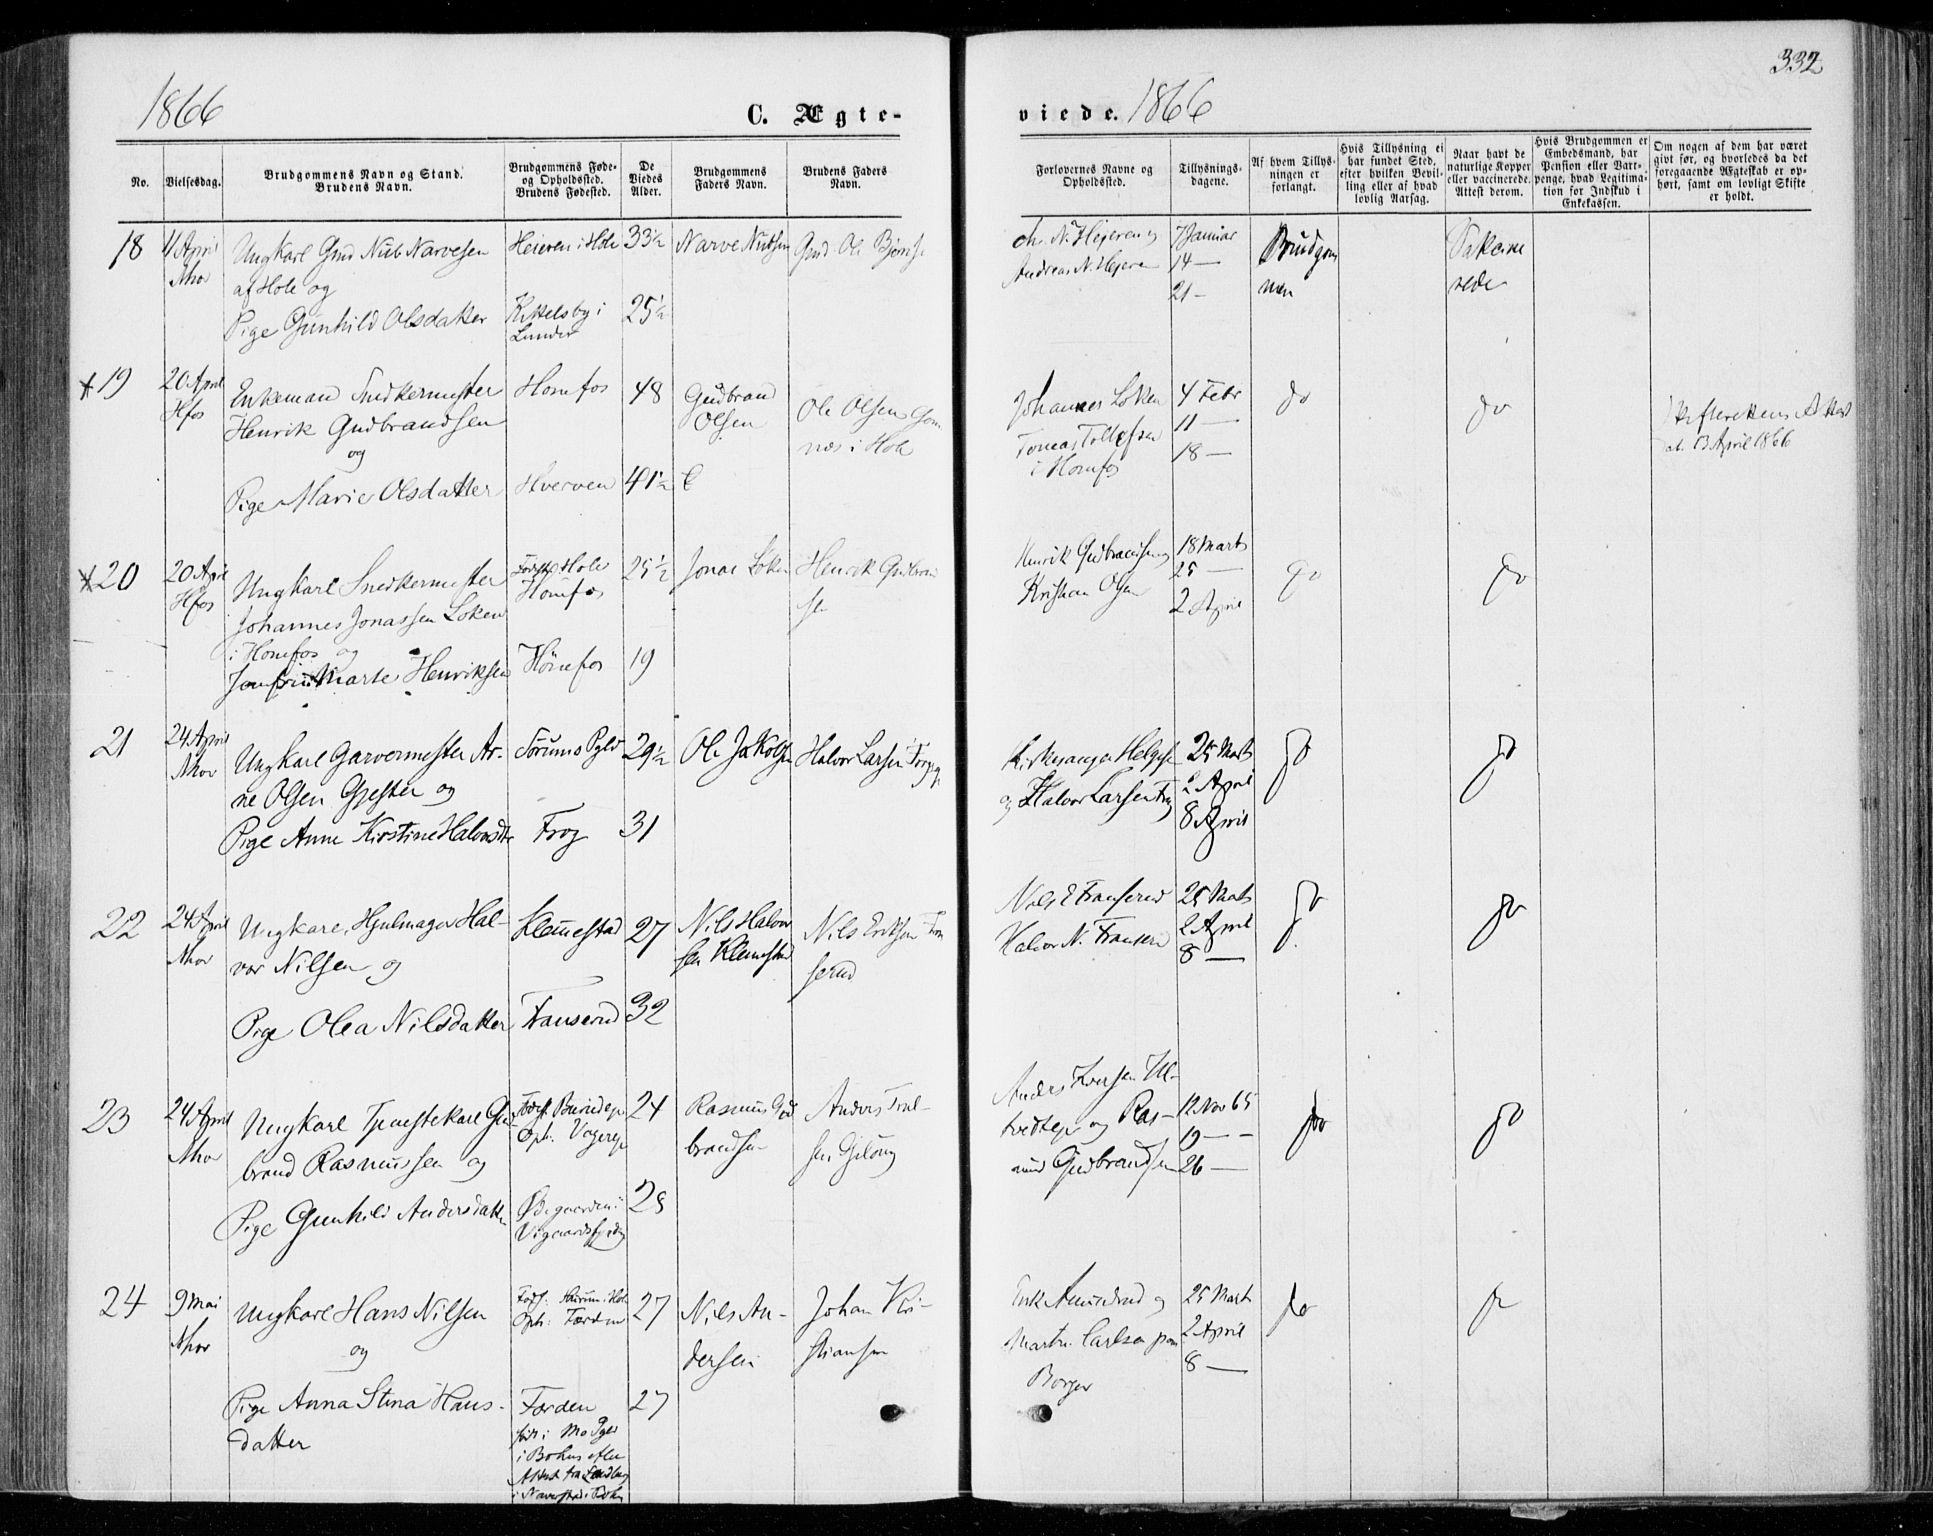 332
1866
C. Ægte-
viede.
1866
No.
Vielsesdag.
Brudgommens Navn og Stand.
Brudens Navn.
Brudgommens Føde-
og Opholdsted.
Brudens Fødested.
De
Viedes
Alder.
Brudgommens
Faders Navn.
Brudens Faders
Navn.
Forlovernes Navne og
Opholdsted.
Tillysnings-
dagene.
Af hvem Tillys-
ningen er
forlangt.
Hvis Tillysning ei
har fundet Sted,
efter hvilken Bevil-
ling eller af hvad
lovlig Aarsag.
Naar havt de
naturlige Kopper
eller vaccinerede.
Attest derom.
Hvis Brudgommen er
Embedsmand, har
Pension eller Vart-
penge, hvad Legitima-
tion for Indskud i
Enkekassen.
Om nogen af dem har været
givt før, og hvorledes da det
foregaaende Ægteskab er op-
hørt, samt om lovligt Skifte
er holdt.
18
April
Nhov
Ungkarl Gud Narvesen
af Hole og
Pige Gunhild Olsdatter
Heieren i Hole
Kittelsby i
Lunder
33½
25½
Narve
Gud Ole
Hejeren og
Andreas N. Hejeren
7 Januar
14 —
21 —
Brudgom
men
19
20 April
Hfos
Enkemand Snedkermester
Henrik Gudbrandsen
og
Pige Marie Olsdatter
Honefos
Hverven
48
41½
Gudbrand
Olsen
Ole Olsen
næs i Hole
Johannes Loken
Tomas Tollefsen
i Honefos
4 Febr
11 —
18 —
do
do
Attest
3 April 1866
20
20 April
Hfos
Ungkarl Snedkermester
Johannes Jonassen Loken
i Honefos og
Jomfru Marte Henriksen
Hole
Honefos
Hönefos
25½
19
Jonas Loken
Henrik Gudbrand
sen
Henrik Gudbrandsen og
Kristian Olsen
18 Marts
25 —
2 April
do
do
21
24 April
Nhov
Ungkarl Garvermester Ar-
ne Olsen Gjester og
Pige Anne Kirstine Halvorsdtr
Sørums Pgld
Frog
29½
31
Ole Jakobsen
Halvor Larsen
Kirkesanger Helgesen
og Halvor Larsen
25 Marts
2 April
8 April
do
do
22
24 April
Nhov
Ungkarl, Hjulmager Hal-
vor Nilsen og
Pige Olea Nilsdatter
Klemmestad
Franserud
27
32
Nils Halvor
sen Klemestad
Nils Eriksen Fran
serud
Nils E Franserud
Halvor N. Franserud
25 Marts
2 April
8 —
do
do
23
24 April
Nhov
Ungkarl Tjenestekarl Gud-
brand Rasmussen og
Pige Gunhild Andersdatter
24
28
Rasmus Gud
brandsen
Anders
sen
Anders
og Ras-
mus Gudbrandsen
12 Nov 65
19 —
26 —
do
do
24
9 Mai
Nhov
Ungkarl Hans Nilsen
og
Pige Anna Stina Hans-
datter
Færden
Færden
født i Mo Pgld
i Bohus
Attest fra
27
27
Nils An-
dersen
Johan Kri-
stiansen
Martin Carlsen paa
Borger
25 Marts
2 April
8 —
do